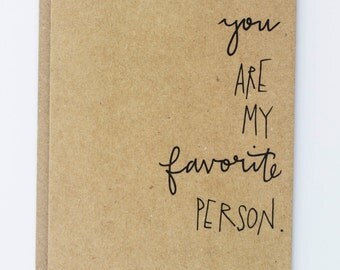 you
ARE
MY
favorite
PERSON.